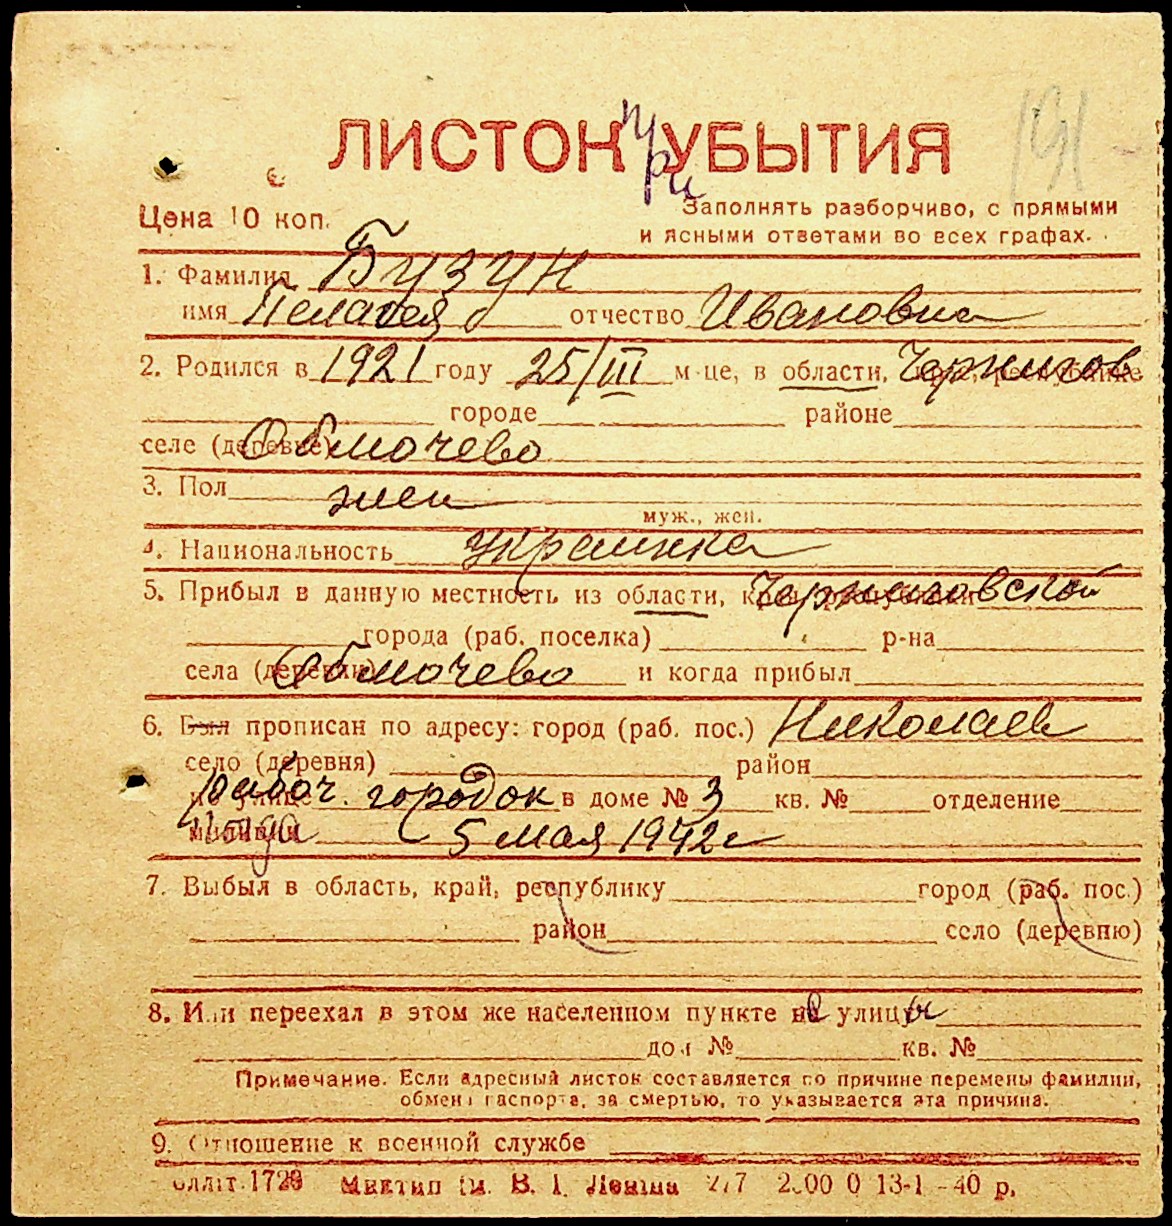 191
ЛИСТОК приУБЫТИЯ
Цена 10 коп.
Заполнять разборчиво, с прямыми
и ясными ответами во всех графах.
1. Фамилия Бузун
имя Пелагея отчество Ивановна
2. Родился в 1921 году 25/III м-це, в области, крае, республике Чернигов
городе районе
селе (деревне) Обмочево
3. Пол жен
муж., жен.
4. Национальность украинка
5. Прибыл в данную местность из области, края, республики Черниговской
города (раб. поселка) р-на
села (деревни) Обмочево и когда прибыл
6. Был прописан по адресу: город (раб. пос.) Николаев
село (деревня) район
по улице Рабоч. городок в доме № 3 кв. № отделение
милиции 5 мая 1942 г
7. Выбыл в область, край, республику город (раб. пос.)
район село (деревню)
8. Или переехал в этом же населенном пункте на улицу
дом № кв. №
Примечание. Если адресный листок составляется по причине перемены фамилии,
обмена паспорта, за смертью, то указывается эта причина.
9. Отношение к военной службе
1729 В. І. Леніна 277 13-I-40 р.